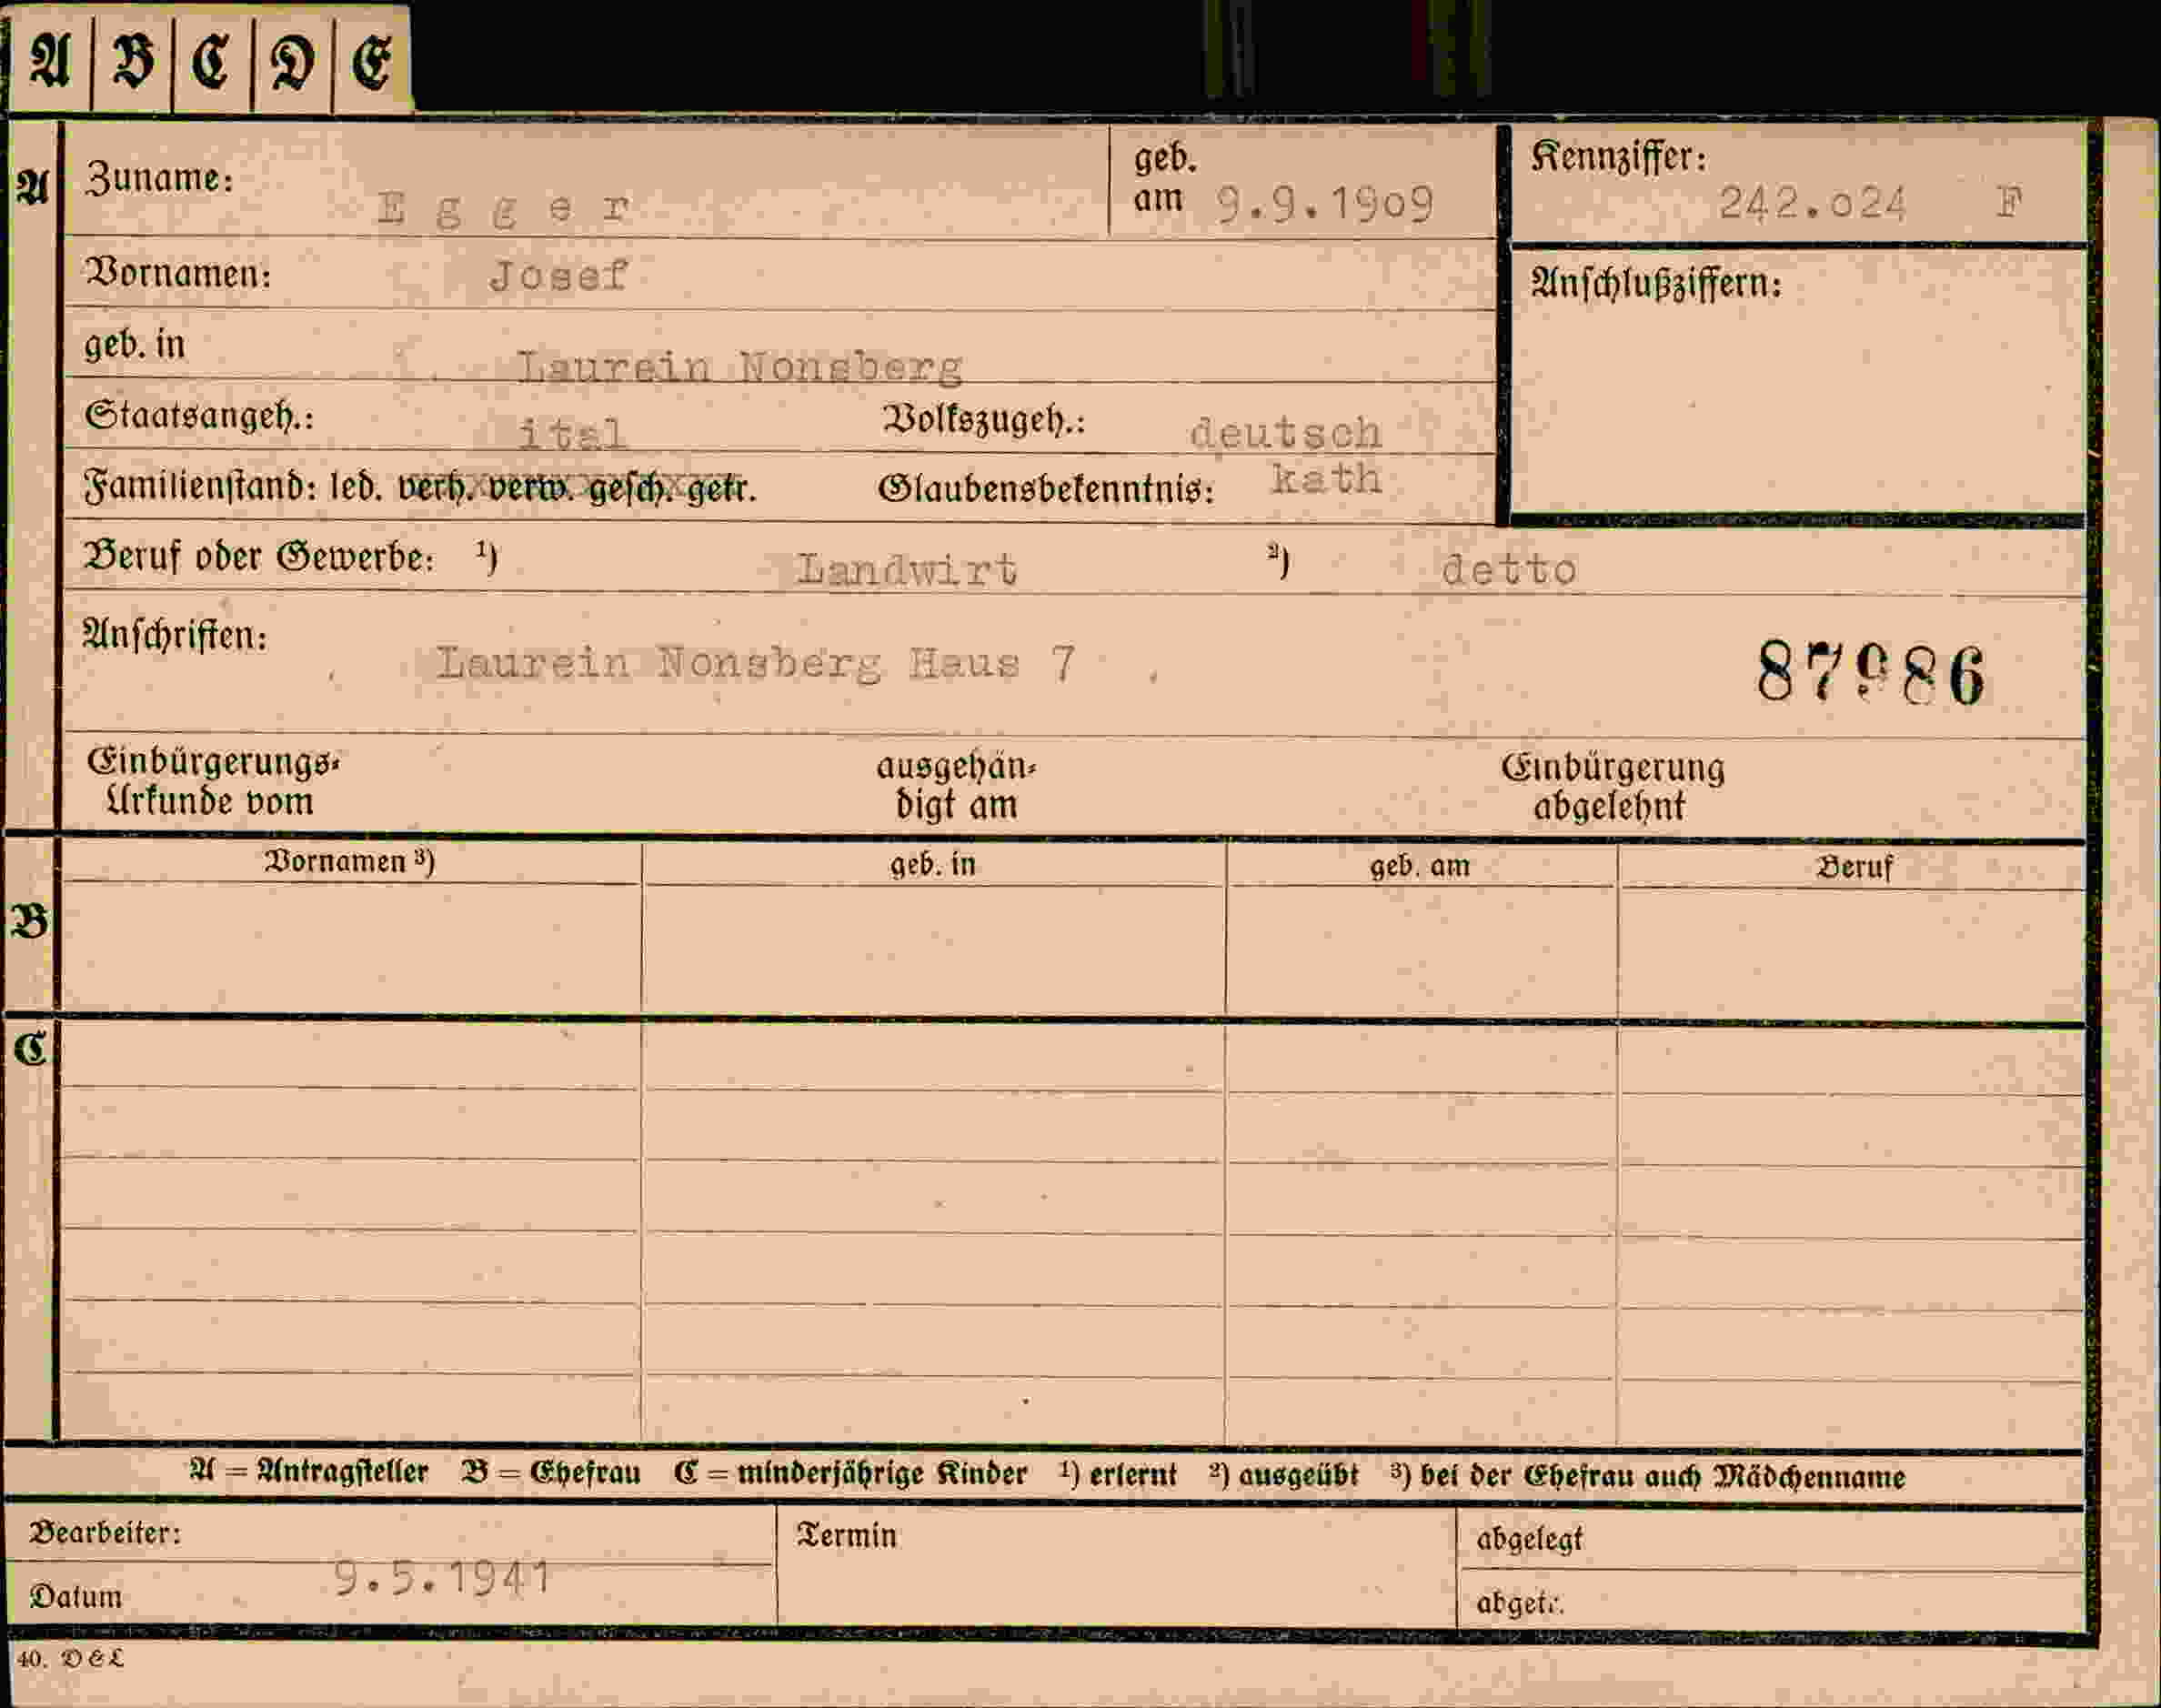 A B C D E
A Zuname: Egger geb. am 9.9.1909 Kennziffer: 242.024 F
Vornamen: Josef Anschlußziffern:
geb. in Laurein Nonsberg
Staatsangeh.: ital Volkszugeh.: deutsch
Familienstand: led. verh. verw. gesch. getr. Glaubensbekenntnis: kath
Beruf oder Gewerbe: ¹) Landwirt ²) detto
Anschriften: Laurein Nonsberg Haus 7 87986
Einbürgerungs- ausgehän- Einbürgerung
Urkunde vom digt am abgelehnt
Vornamen ³) geb. in geb. am Beruf
B
C
A = Antragsteller B = Ehefrau C = minderjährige Kinder ¹) erlernt ²) ausgeübt ³) bei der Ehefrau auch Mädchenname
Bearbeiter: Termin abgelegt
Datum 9.5.1941 abgetr.
40. D & L